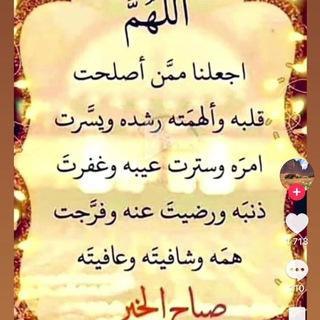 اللَّهُمَّ
اجعلنا ممَّن أصلحت
قلبه وألهمَته رشده ويسَّرت
امرَه وسترت عيبه وغفرتَ
ذنبَه ورضيتَ عنه وفرَّجت
همَه وشافيتَه وعافيتَه
صباح الخير